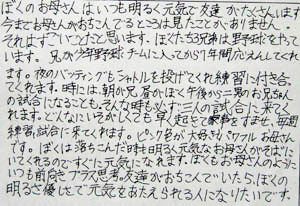 ぼくのお母さんはいつも明るく元気で友達がたくさんいます。
今までお母さんがおちこんでるところは見たことがありません。
それはすごいことだと思います。ぼくたち3兄弟は野球をやって
います。兄が少年野球チームに入ってから7年間おうえんしてくれ
ます。夜のバッティングもシャトルを投げてくれ練習に付き合っ
てくれます。時には、朝か兄昼かぼく午後から三男のお兄ちゃん
の試合になることも。そんな時も必ず三人の試合に来てく
れます。どんなにいそがしくても早く起きて家事をすませ、毎週
練習、試合に来てくれます。ピンク色が大好きパワフルお母さん
です。ぼくは落ちこんだ時も明るく元気なお母さんがそばに
いてくれるのですぐに元気になれます。ぼくもお母さんのように
いつも前向きプラス思考。友達がおちこんでいたら、ぼくの
明るさ優しさで元気をあたえられる人になりたいです。